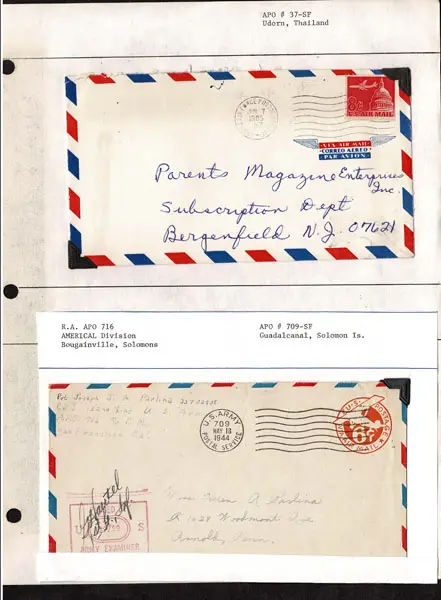 APO # 37-SF
Udorn, Thailand
1965
8¢
U.S. AIR MAIL
VIA AIR MAIL
CORREO AEREO
PAR AVION
Parents Magazine Enterprises
Inc.
Subscription Dept
Bergenfield N. J. 07621
R.A. APO 716
AMERICAL Division
Bougainville, Solomons
APO # 709-SF
Guadalcanal, Solomon Is.
Pvt Joseph
U S Army
San Francisco Cal
U.S. ARMY
709
MAY 18
1944
POSTAL SERVICE
U.S. POSTAGE
6¢
AIR MAIL
A
A 1028 Woodmont Ave
Arnold, Penn.
U S
ARMY EXAMINER